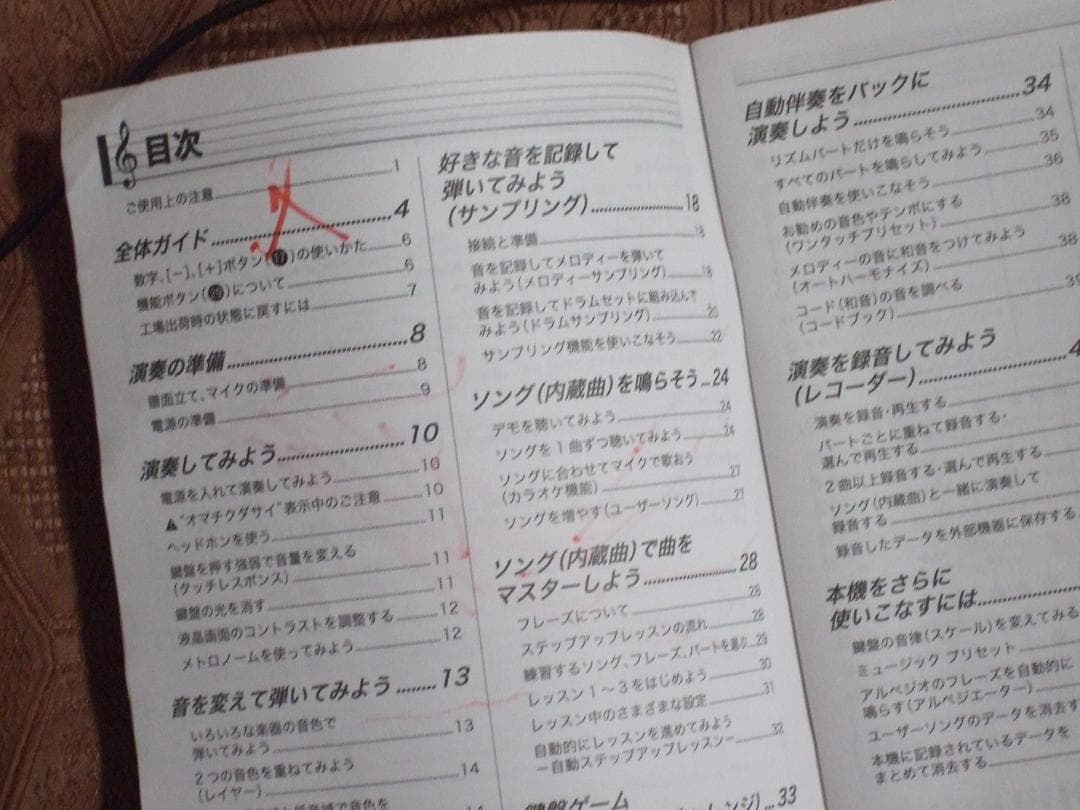 目次
ご使用上の注意 1
全体ガイド 4
数字、[−]、[+]ボタン(⓱)の使いかた 6
機能ボタン()について 6
工場出荷時の状態に戻すには 7
演奏の準備 8
譜面立て、マイクの準備 8
電源の準備 9
演奏してみよう 10
電源を入れて演奏してみよう 10
▲“オマチクダサイ”表示中のご注意 10
ヘッドホンを使う 11
鍵盤を押す強弱で音量を変える
(タッチレスポンス) 11
鍵盤の光を消す 11
液晶画面のコントラストを調整する 12
メトロノームを使ってみよう 12
音を変えて弾いてみよう 13
いろいろな楽器の音色で
弾いてみよう 13
2つの音色を重ねてみよう
(レイヤー) 14
好きな音を記録して
弾いてみよう
(サンプリング) 18
接続と準備 18
音を記録してメロディーを弾いて
みよう(メロディーサンプリング) 18
音を記録してドラムセットに組み込んで
みよう(ドラムサンプリング) 20
サンプリング機能を使いこなそう 22
ソング(内蔵曲)を鳴らそう 24
デモを聴いてみよう 24
ソングを1曲ずつ聴いてみよう 24
ソングに合わせてマイクで歌おう
(カラオケ機能) 27
ソングを増やす(ユーザーソング) 27
ソング(内蔵曲)で曲を
マスターしよう 28
フレーズについて 28
ステップアップレッスンの流れ 28
練習するソング、フレーズ、パートを選ぶ 29
レッスン1〜3をはじめよう 30
レッスン中のさまざまな設定 31
自動的にレッスンを進めてみよう
ー自動ステップアップレッスンー 32
鍵盤ゲーム
33
自動伴奏をバックに
演奏しよう 34
リズムパートだけを鳴らそう 34
すべてのパートを鳴らしてみよう 35
自動伴奏を使いこなそう 36
お勧めの音色やテンポにする
(ワンタッチプリセット) 38
メロディーの音に和音をつけてみよう
(オートハーモナイズ) 38
コード(和音)の音を調べる
(コードブック) 39
演奏を録音してみよう
(レコーダー) 4
演奏を録音・再生する
パートごとに重ねて録音する・
選んで再生する
2曲以上録音する・選んで再生する
ソング(内蔵曲)と一緒に演奏して
録音する
録音したデータを外部機器に保存する
本機をさらに
使いこなすには
鍵盤の音律(スケール)を変えてみる
ミュージック プリセット
アルペジオのフレーズを自動的に
鳴らす(アルペジエーター)
ユーザーソングのデータを消去す
本機に記録されているデータを
まとめて消去する